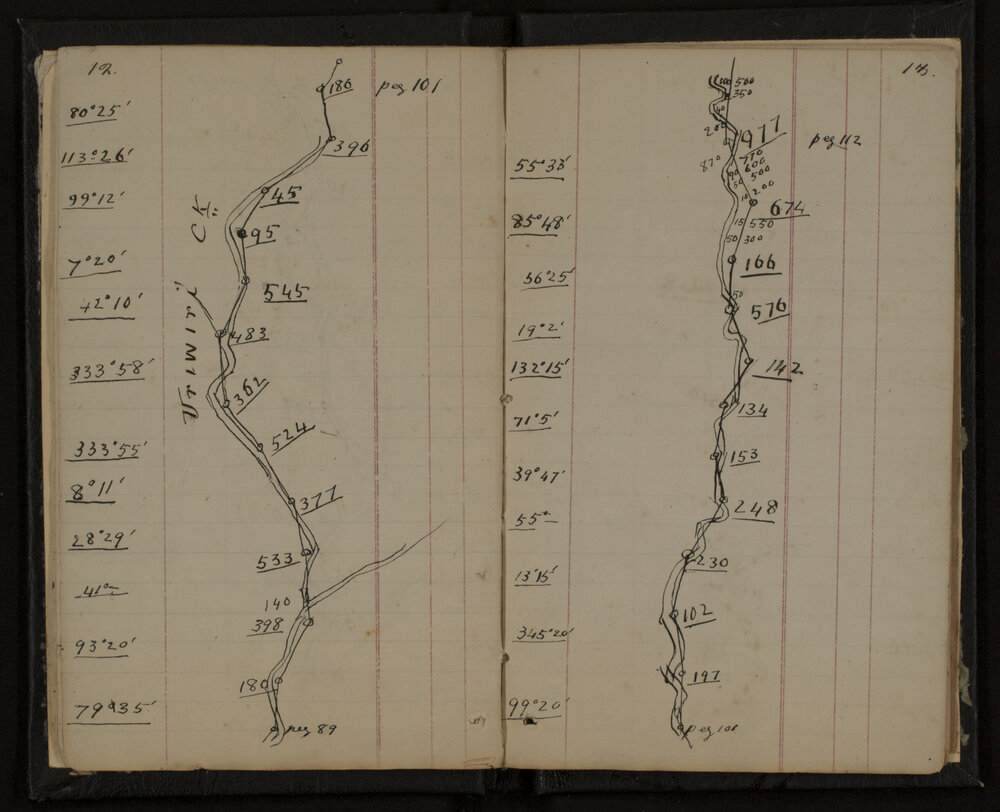 12.
186 peg 101
80°25'
396
113°26'
45
99°12'
CK
95
7°20'
545
42°10'
483
333°58'
362
524
333°55'
377
8°11'
533
28°29'
140
41°
398
93°20'
180
79°35'
peg 89
13.
100 500
350
40
20
977
peg 112
870
770
600
90
500
50
200
55°33'
10
674
15 550
85°48'
50 300
166
56°25'
50
576
19°2'
142
132°15'
134
71°5'
153
39°47'
248
55°
230
13°15'
102
345°20'
197
99°20'
peg 101